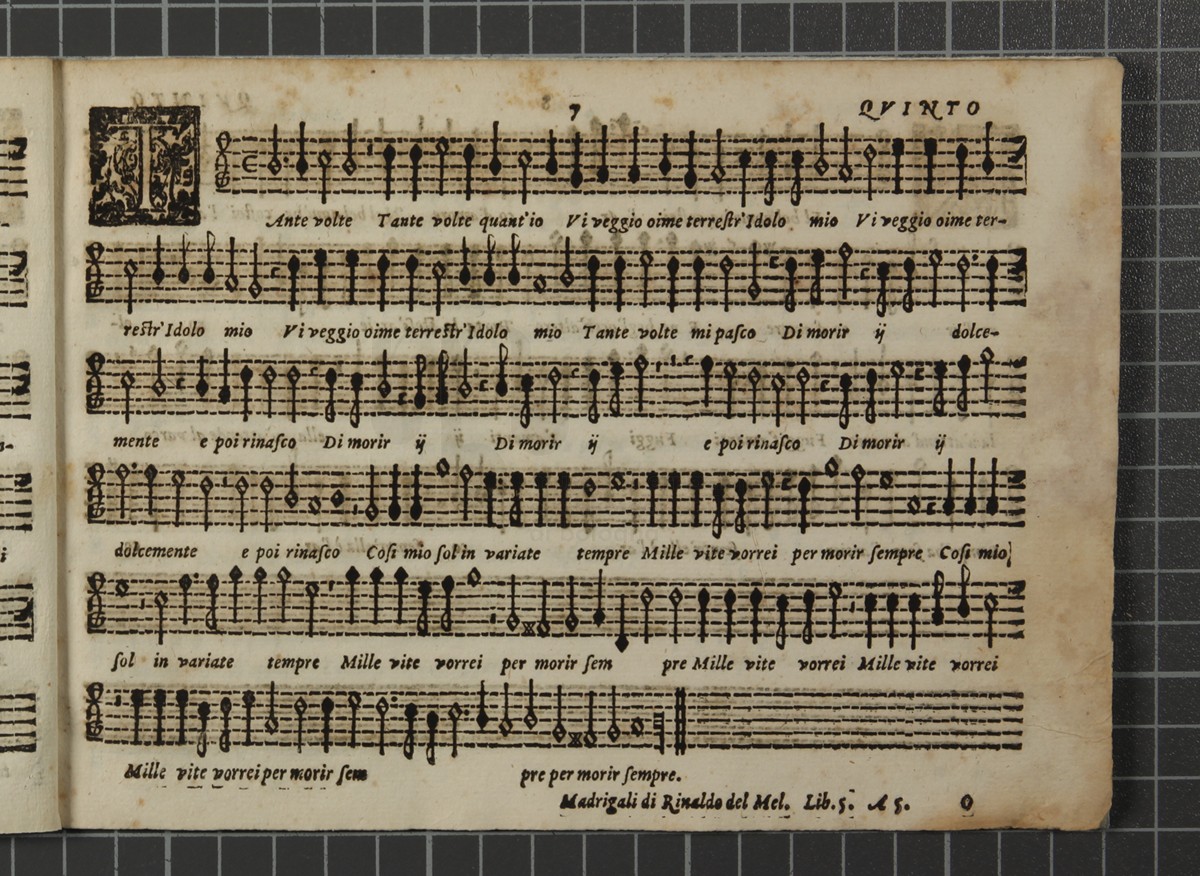 7 QVINTO
TAnte volte Tante volte quant'io Vi veggio oime terrestr'Idolo mio Vi veggio oime ter-
restr'Idolo mio Vi veggio oime terrestr'Idolo mio Tante volte mi pasco Di morir ij dolce-
mente e poi rinasco Di morir ij ij Di morir ij e poi rinasco Di morir ij
dolcemente e poi rinasco Cosi mio sol in variate tempre Mille vite vorrei per morir sempre Cosi mio
sol in variate tempre Mille vite vorrei per morir sem pre Mille vite vorrei Mille vite vorrei
Mille vite vorrei per morir sem pre per morir sempre.
Madrigali di Rinaldo del Mel. Lib. 5. A 5. O